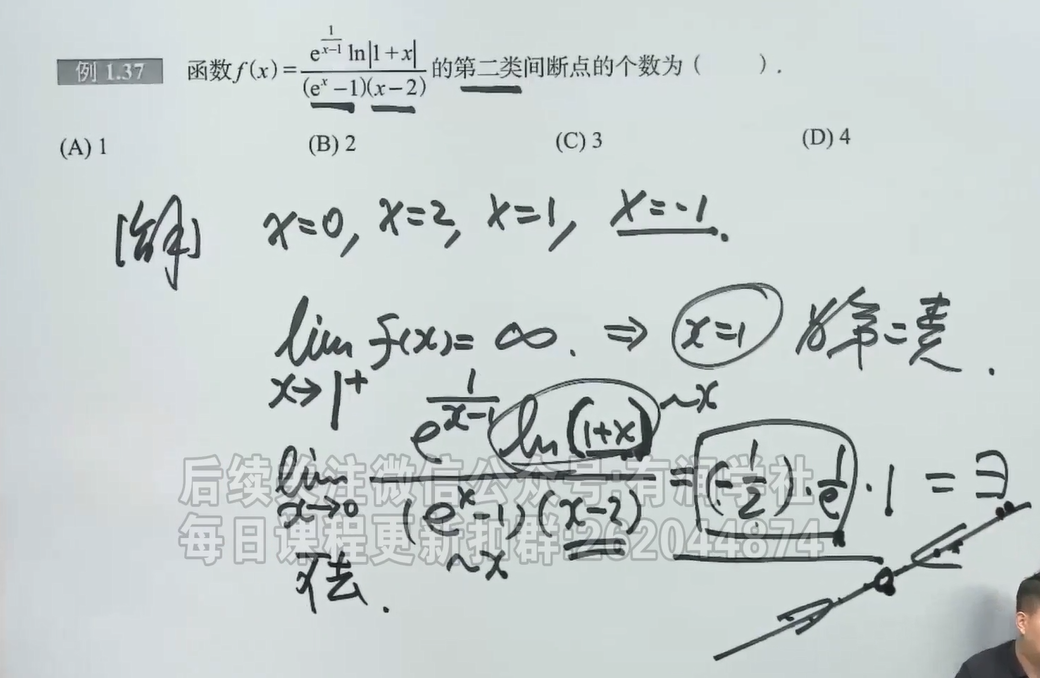 例 1.37 函数 f(x)=\frac{e^{\frac{1}{x-1}}\ln|1+x|}{(e^x-1)(x-2)} 的第二类间断点的个数为( ).
(A) 1 (B) 2 (C) 3 (D) 4
[解] x=0, x=2, x=1, x=-1.
\lim_{x→1^+} f(x)=∞. ⇒ x=1 为第二类.
\lim_{x→0} \frac{e^{\frac{1}{x-1}}\ln(1+x)}{(e^x-1)(x-2)} = (-\frac{1}{2})·\frac{1}{e}·1 = ∃
~x
~x
可去.
后续关注微信公众号:有渊学社
每日课程更新扣群:262044874